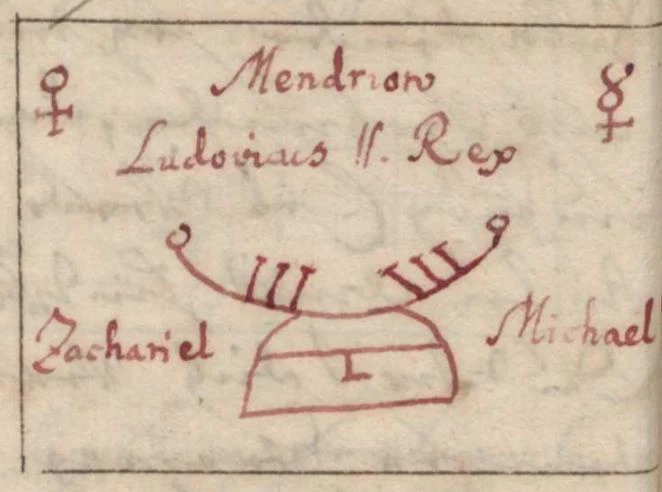 ♀ Mendrion ☿
Ludovicus II. Rex
III III
Zachariel Michael
L